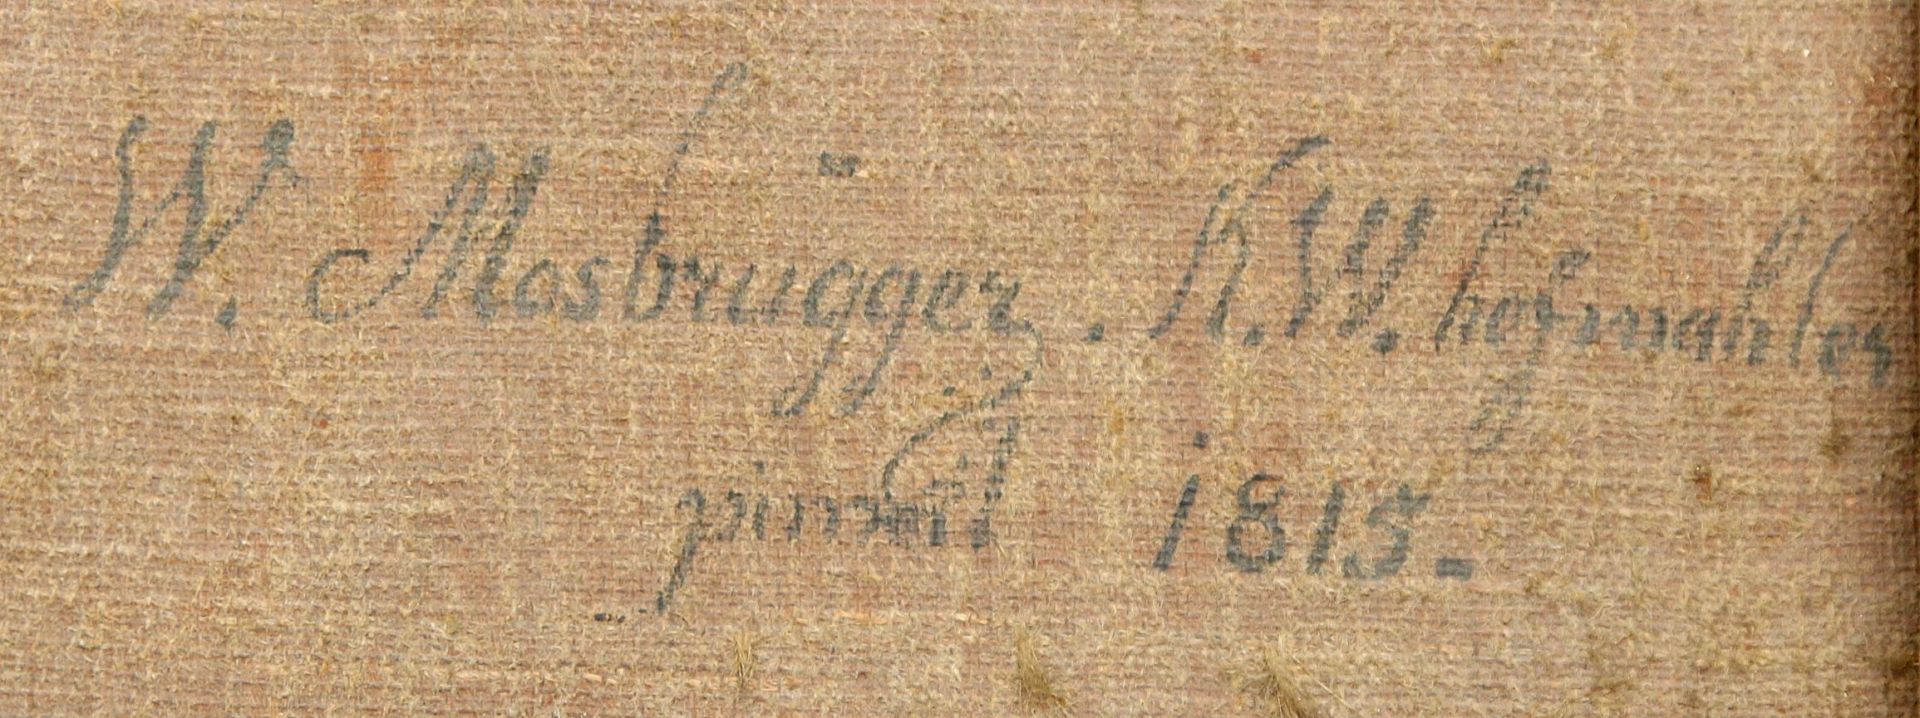 W. Mosbrügger. K. W. hofmahler
pinxit 1815.